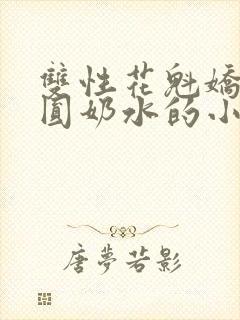 雙性花魁嬌
圓奶水的小
唐夢若影